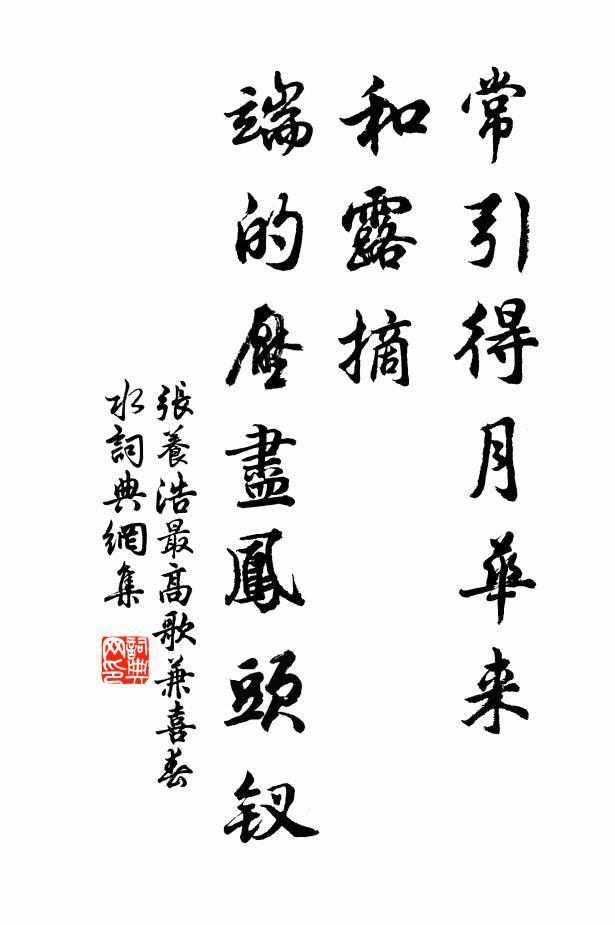 常引得月華来
和露摘
端的壓盡鳳頭釵
張養浩最高歌兼喜春
水詞典網集
詞典
网印